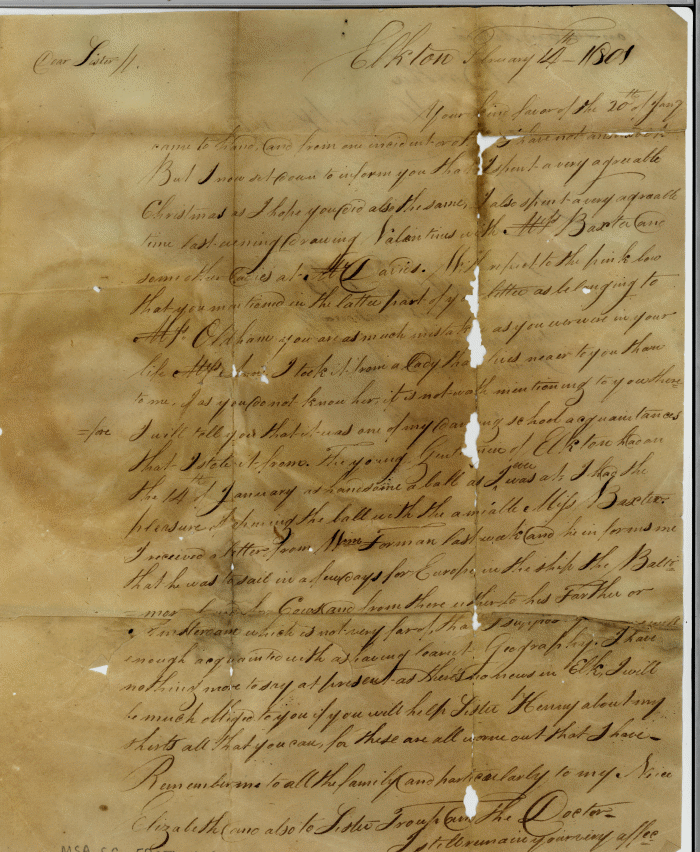 Dear Sister //.
Elkton February 14th - 1801
Your kind favor of the 20th of Jany
came to hand, and from one incident or I have not answered
But I now set down to inform you that I spent a very agreable
Christmas as I hope you did also the same, I also spent a very agreable
time last evening drawing Valentines with Mrs Baxter and
some other Ladies at Mrs Davis. With respect to the pink bow
that you mentioned in the latter part of your letter as belonging to
Mrs. Oldham you are as much mistaken as you were in your
life I took it from a Lady that lives nearer to you than
to me, & as you do not know her, it is not worth mentioning to you there=
=fore I will tell you that it was one of my dancing school acquaintances
that I stole it from. The young Gentlemen of Elkton had on
the 14th of January as handsome a ball as I ever was at, I had the
pleasure of opening the ball with the amiable Miss Baxter.
I received a letter from Wm Forman last week and he informs me
that he was to sail in a few days for Europe, in the ship the Balti=
=more Cows and from there either to his Farther or
which is not very far of, that I suppose well
enough acquainted with as having learnt Geography. I have
nothing more to say at present as there's no news in Elk, I will
be much obliged to you if you will help Sister Henny about my
shirts all that you can, for these are all worne out that I have—
Remember me to all the family and particularly to my Niece
Elizabeth and also to Sister Troup and The Doctor—
I still remain your very affec